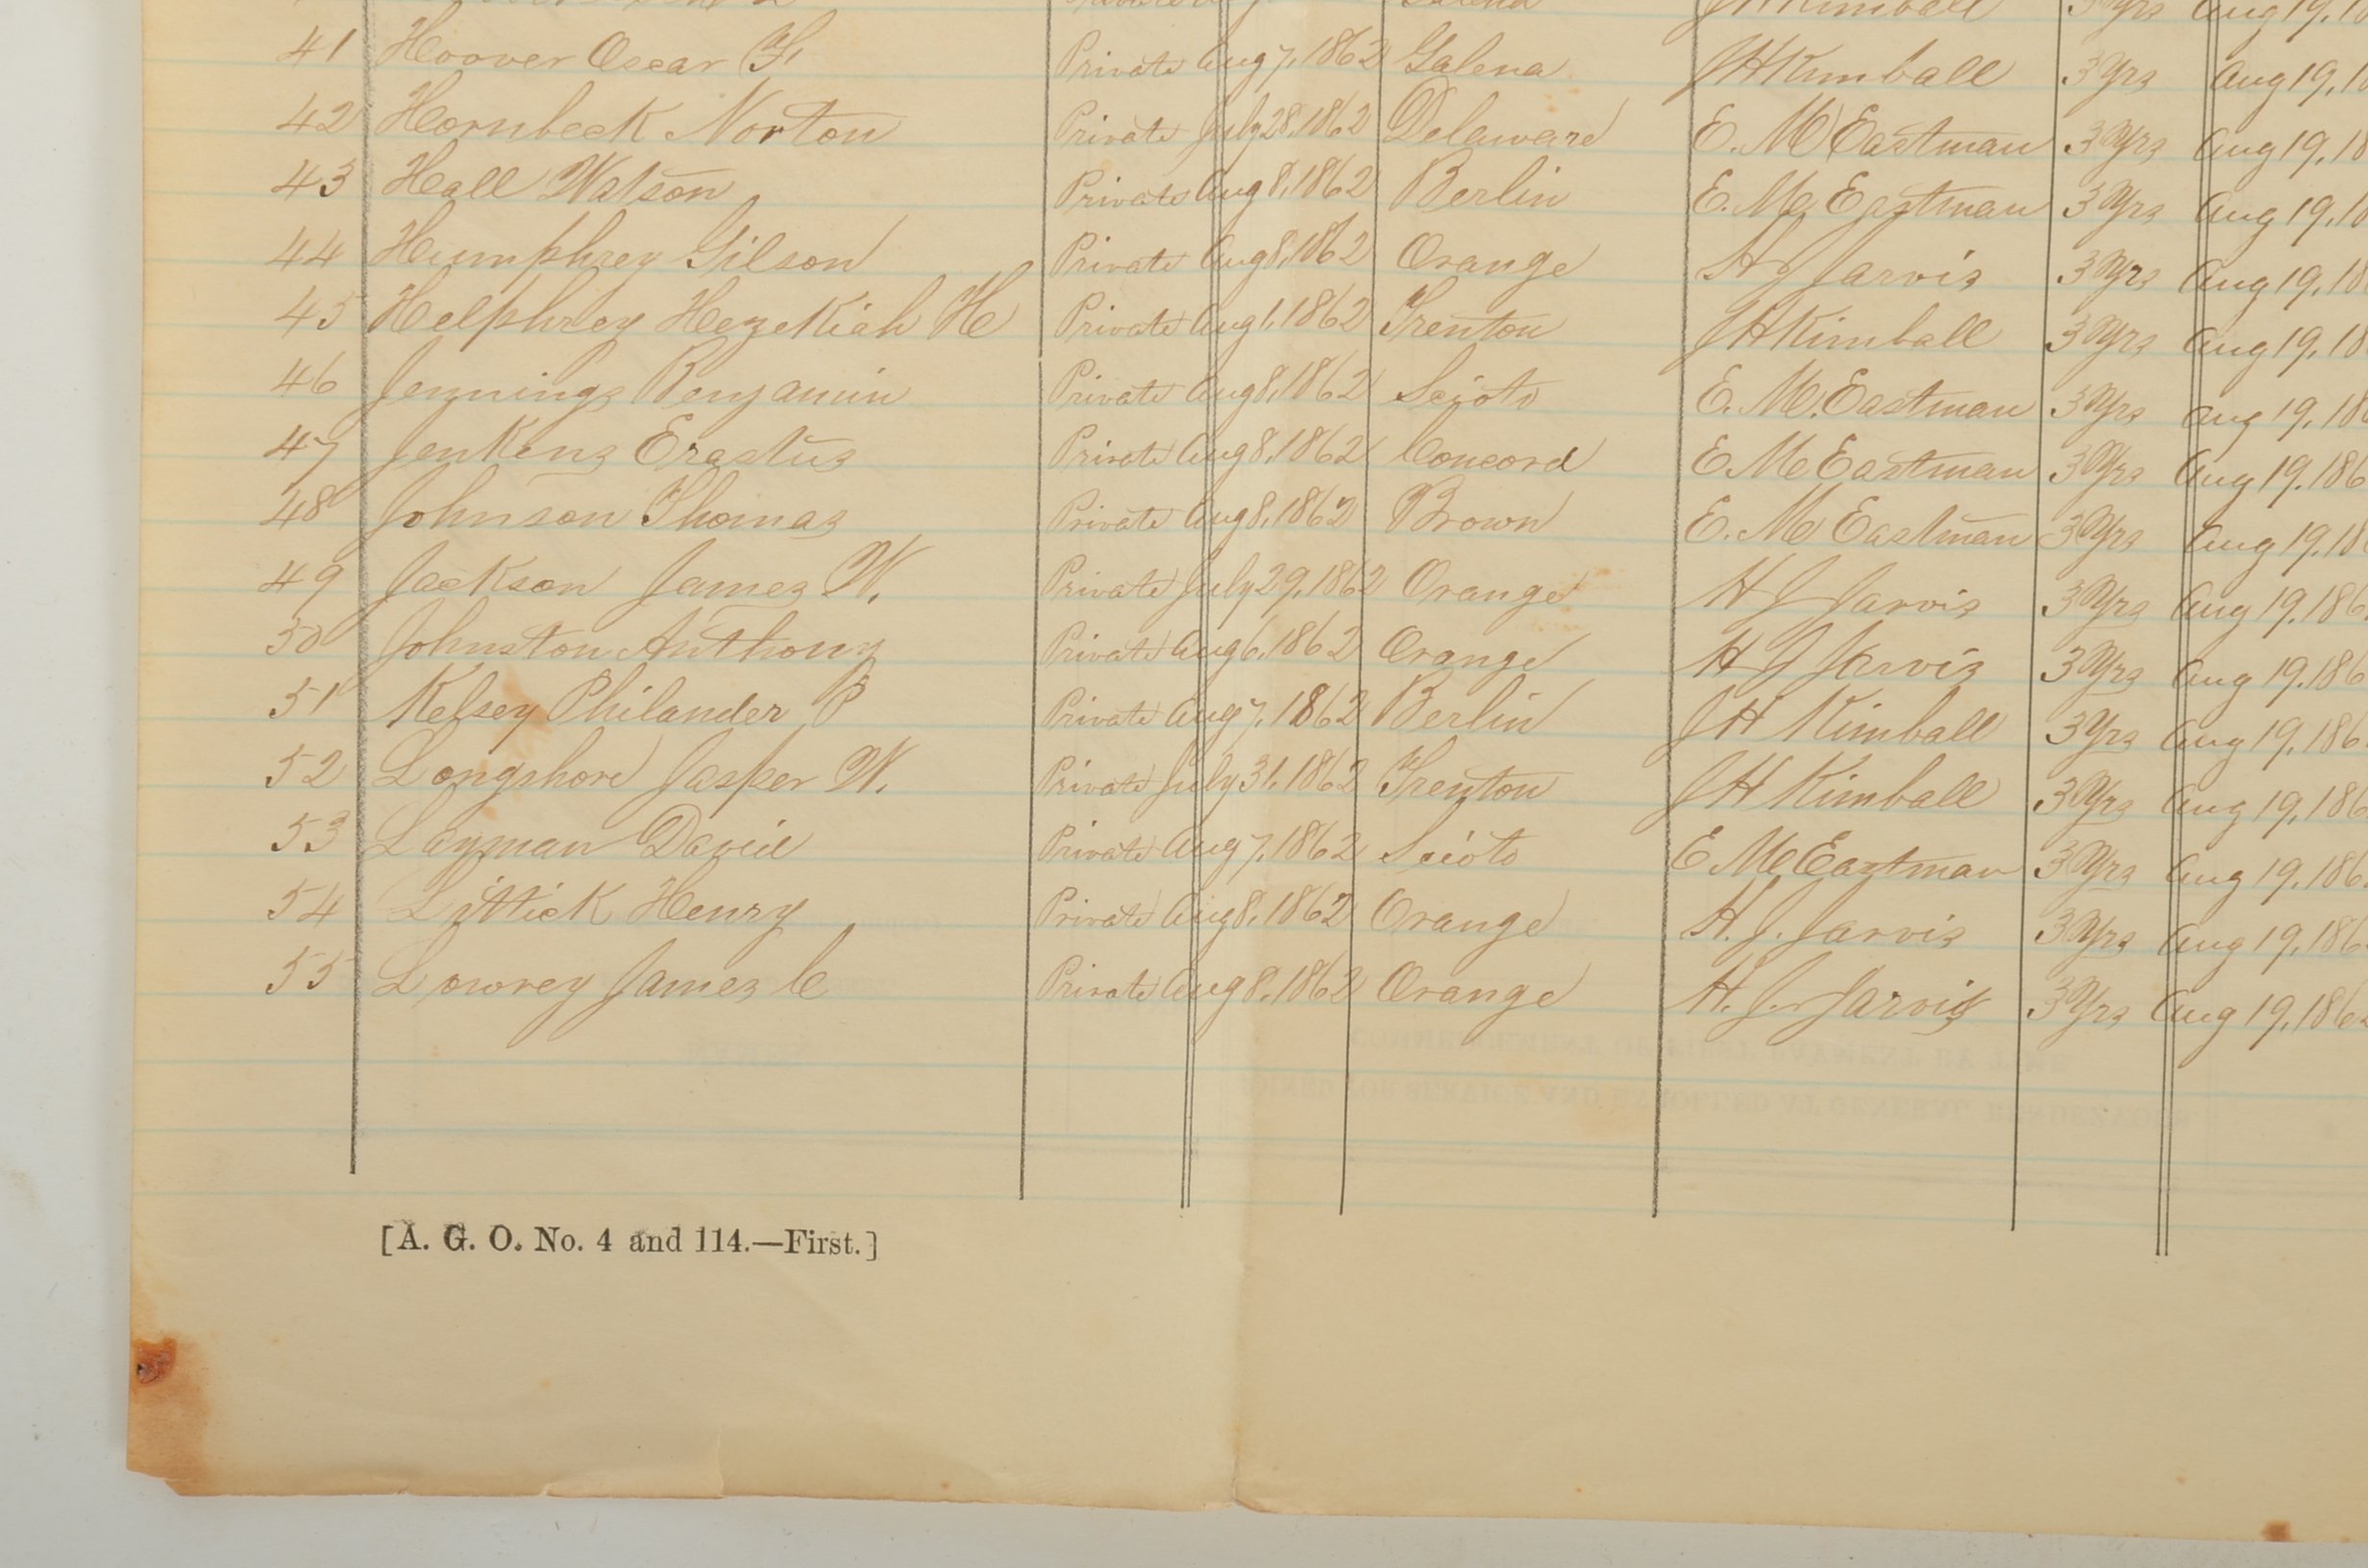 JH Kimball 3 Yrs Aug 19, 18
41 Hoover Oscar F. Private Aug 7, 1862 Galena JH Kimball 3 Yrs Aug 19, 18
42 Hornbeck Norton Private July 28, 1862 Delaware E. M Eastman 3 Yrs Aug 19, 18
43 Hall Watson Private Aug 8, 1862 Berlin E. M. Eastman 3 Yrs Aug 19, 18
44 Humphrey Gilson Private Aug 8, 1862 Orange H J Jarvis 3 Yrs Aug 19, 186
45 Helphrey Hezekiah H Private Aug 1, 1862 Trenton JH Kimball 3 Yrs Aug 19, 18
46 Jennings Benjamin Private Aug 8, 1862 Scioto E. M. Eastman 3 Yrs Aug 19, 186
47 Jenkens Erastus Private Aug 8, 1862 Concord E M Eastman 3 Yrs Aug 19. 186
48 Johnson Thomas Private Aug 8, 1862 Brown E. M Eastman 3 Yrs Aug 19. 186
49 Jackson James W. Private July 29, 1862 Orange H J Jarvis 3 Yrs Aug 19. 186
50 Johnston Anthony Private Aug 6, 1862 Orange H J Jarvis 3 Yrs Aug 19. 186
51 Kelsey Philander P Private Aug 7, 1862 Berlin JH Kimball 3 Yrs Aug 19, 186
52 Longshore Jasper W. Private July 31, 1862 Trenton JH Kimball 3 Yrs Aug 19, 186
53 Layman David Private Aug 7, 1862 Scioto E M Eastman 3 Yrs Aug 19, 186
54 Littick Henry Private Aug 8, 1862 Orange H. J. Jarvis 3 Yrs Aug 19, 186
55 Lowrey James C Private Aug 8, 1862 Orange H. J. Jarvis 3 Yrs Aug 19, 186
[A. G. O. No. 4 and 114.—First.]